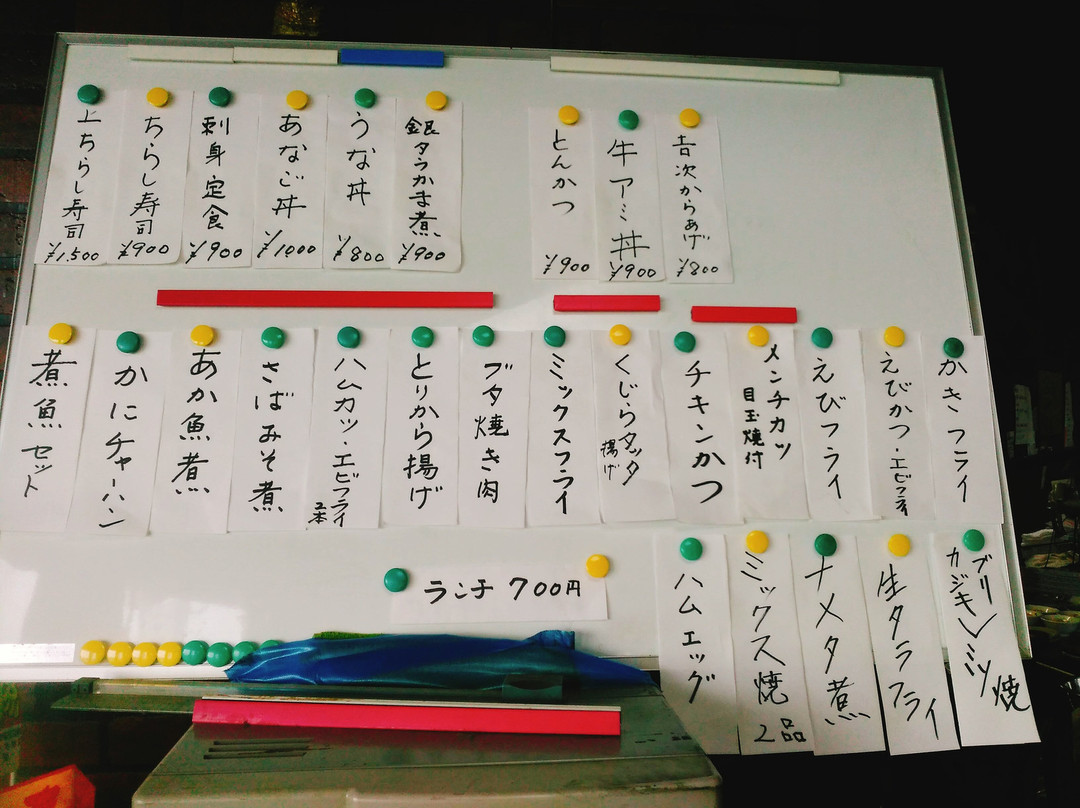 吉次からあげ
¥800
牛アミ丼
¥900
とんかつ
¥900
銀タラかま煮
¥900
うな丼
¥800
あなご丼
¥1000
刺身定食
¥900
ちらし寿司
¥900
上ちらし寿司
¥1.500
かきフライ
えびかつ・エビフライ
えびフライ
メンチカツ
目玉焼付
チキンかつ
くじらタツタ
揚げ
ミックスフライ
ブタ焼き肉
とりから揚げ
ハムカツ・エビフライ
2本
さばみそ煮
あか魚煮
かにチャーハン
煮魚セット
ブリ
カジキ
ミックス焼
生タラフライ
ナメタ煮
ミックス焼
2品
ハムエッグ
ランチ 700円